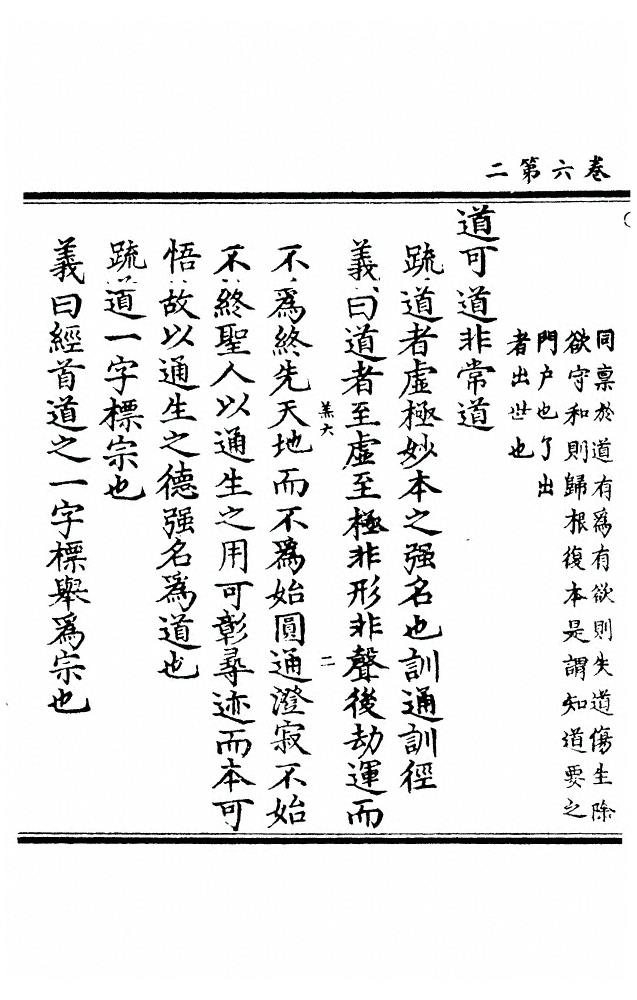 卷六第二
同禀於道有爲有欲則失道傷生除
欲守和則歸根復本是謂知道要之
門户也了出
者出世也
道可道非常道
疏道者虛極妙本之强名也訓通訓徑
義曰道者至虛至極非形非聲後劫運而
羔六　二
不爲終先天地而不爲始圓通澄寂不始
不終聖人以通生之用可彰尋迹而本可
悟故以通生之德强名爲道也
疏道一字標宗也
義曰經首道之一字標舉爲宗也